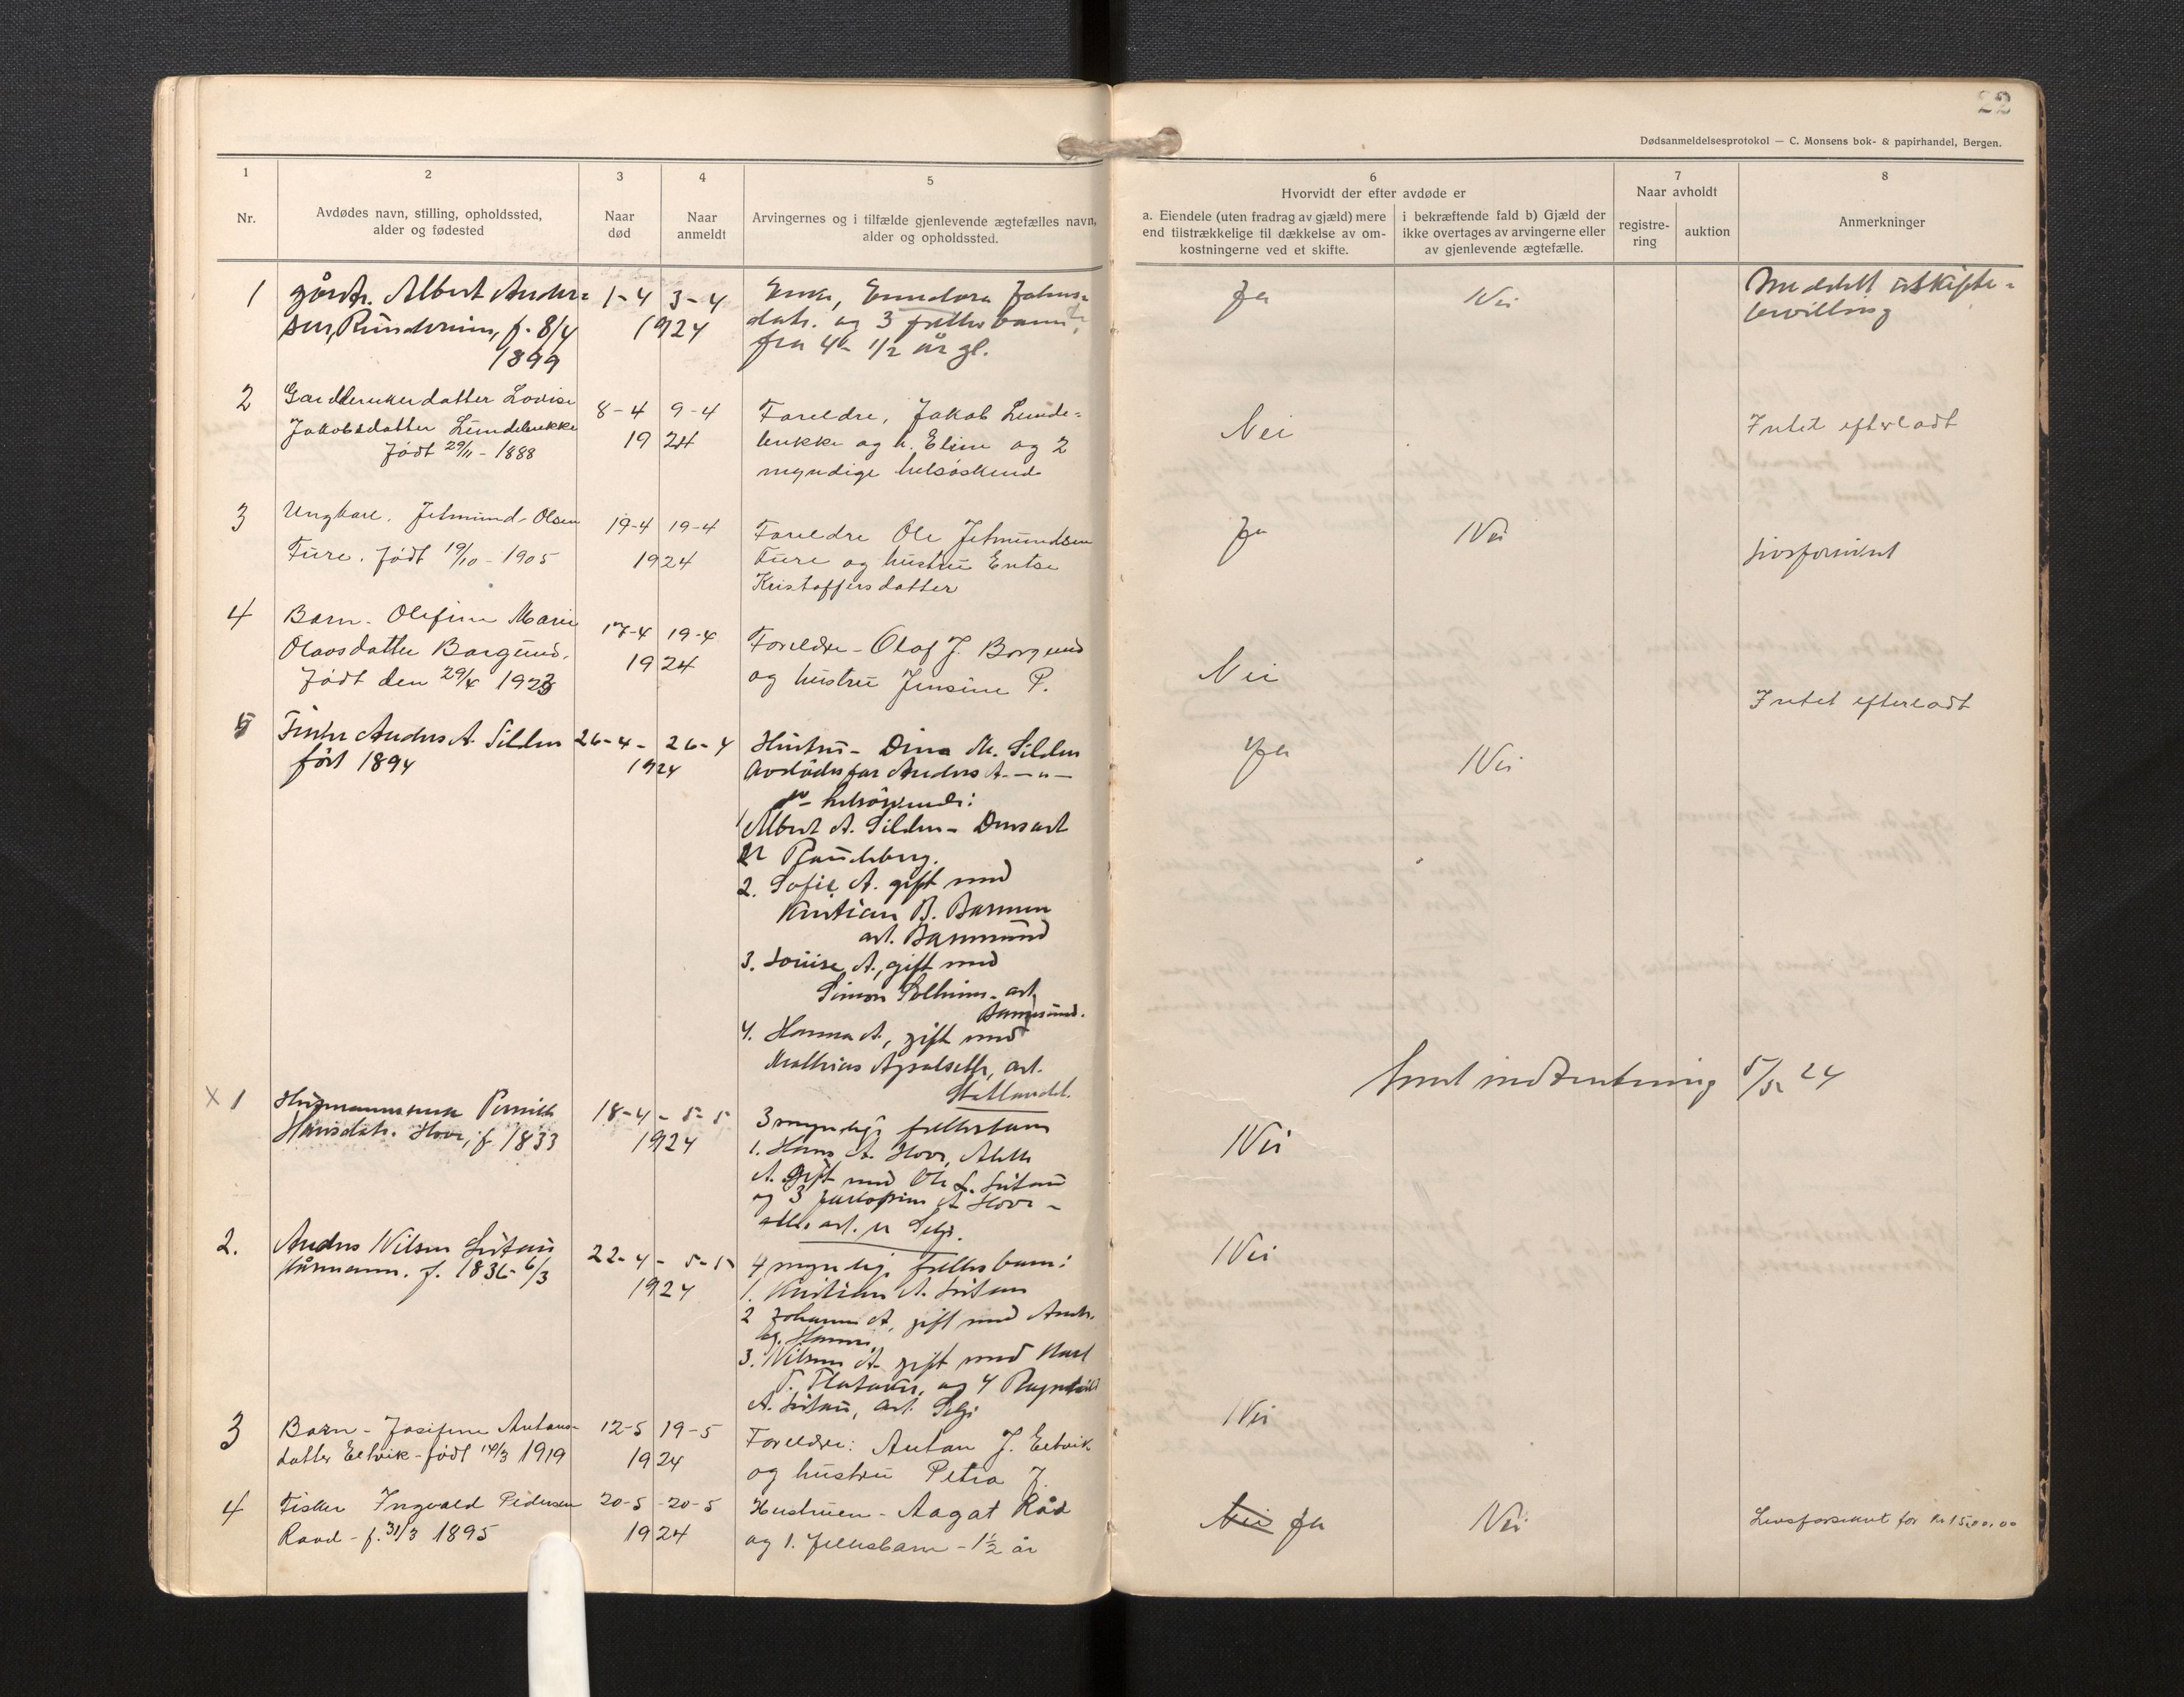 22
Dødsanmeldelsesprotokol — C. Monsens bok- & papirhandel, Bergen.
1
2
3
4
5
6
7
8
Nr.
Avdødes navn, stilling, opholdssted,
alder og fødested
Naar
død
Naar
anmeldt
Arvingernes og i tilfælde gjenlevende ægtefælles navn,
alder og opholdssted.
Hvorvidt der efter avdøde er
a. Eiendele (uten fradrag av gjæld) mere
end tilstrækkelige til dækkelse av om-
kostningerne ved et skifte.
i bekræftende fald b) Gjæld der
ikke overtages av arvingerne eller
av gjenlevende ægtefælle.
Naar avholdt
registre-
ring
auktion
Anmerkninger
1
Albert Ander=
sen, f. 8/4
1899
1-4 3-4
1924
Enke,
datr. og 3 fælles barn,
fra 4 - 1/2 år gl.
Ja
Nei
Meddelt uskifte=
bevilling
2
datter Lovise
Jakobsdatter Lundebrekke
Født 29/11 - 1888
8-4 9-4
1924
Foreldre, Jakob Lunde=
brekke og h. Eline og 2
myndige helsøskend
Nei
Intet efterladt
3
Ungkarl. Jetmund Olsen
Fure. Født 19/10 - 1905
19-4 19-4
1924
Foreldre Ole Jetmundsen
Fure og hustru
Kristoffersdatter
Ja
Nei
Livsforsikret
4
Barn - Olefine Marie
Olavsdatter Borgund.
Født den 29/4 1923
17-4 19-4
1924
Foreldre - Olaf J. Borgund
og hustru Jensine P.
Nei
Intet efterladt
5
Fisker Anders A. Silden
født 1894
26-4 - 26-4
1924
Hustru - Dina M. Silden
Avdødes far Anders A. -"-
helsøskende:
1 Albert A. Silden -
2. Sofie A. gift med
Kristian B. Barmen
art. Barmsund
3. Lovise A., gift med
Simon Solheim - art.
Barmsund.
4. Hanna A., gift med
Mathias Apalsethr, art.
Statlandet.
Ja
Nei
Sendt indberetning 5/5 24
X 1
Pernille
Hansdatr. Hove, f. 1833
18-4 - 5-5
1924
3 myndige fellesbarn
1. Hans A. Hove,
A. gift med Ole L.
og 3 A Hove -
alle art. Selje.
Nei
2.
Anders Nilsen
Kårmann. f. 1836 - 6/3
22-4 - 5-5
1924
4 myndige fellesbarn:
1. Kristian A.
2 Johanne A, gift med
3. A gift med Karl
og 4 Ragnhild
A. art. Selje
Nei
3
Barn - Josefine Antons-
datter Eltvik - født 14/3 1919
12-5 19-5
1924
Foreldre: Anton J. Eltvik
og hustru Petra J.
Nei
4
Fisker Ingvald Pedersen
Raad - f. 31/3 1895
20-5 - 20-5
1924
Hustruen - Aagot Råd
og 1. fellesbarn - 1½ år
Nei Ja
Nei
Livsforsikret for Kr 1500.00